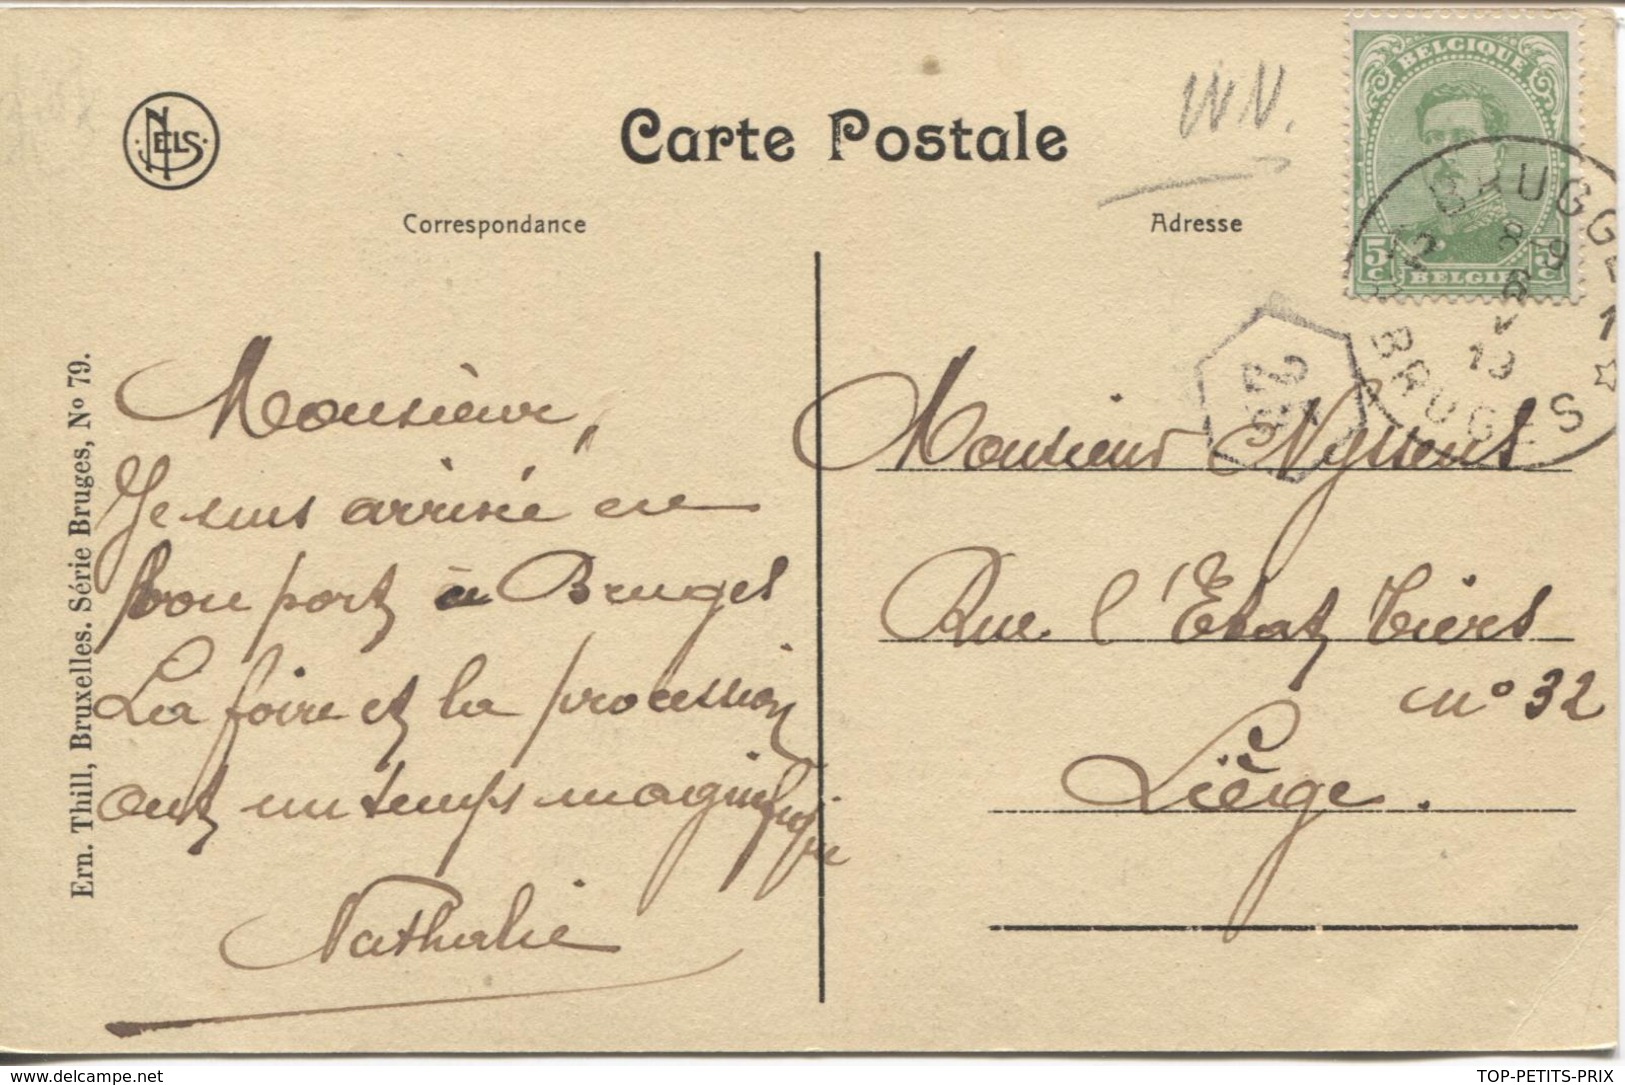 NELS
Carte Postale
W.N.
BELGIQUE
5c BELGIË 5c
BRUGGE 1
12
8-9
BRUGES
Correspondance
Adresse
25
Ern. Thill, Bruxelles. Série Bruges, No 79.
Monsieur,
Je suis arrivée en
bon port à Bruges
La foire et la procession
ont un temps magnifique
Nathalie
Monsieur Nyssens
Rue l'Etat Tiers
No 32
Liège.
TOP-PETITS-PRIX
www.delcampe.net